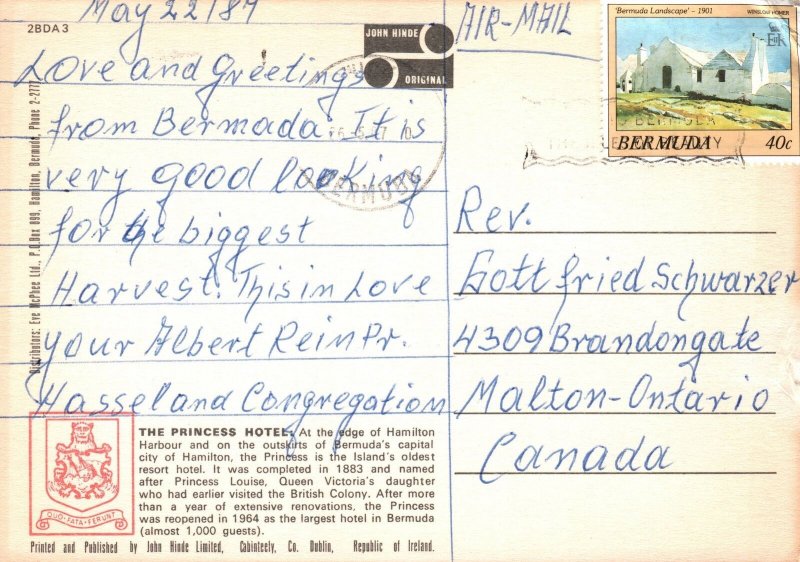 May 22/87
2BDA3
Love and Greetings
from Bermada. It is
very good looking
for the biggest
Harvest. This in Love
your Albert Rein Pr.
Hassel and Congregation
JOHN HINDE
ORIGINAL
AIR-MAIL
'Bermuda Landscape' - 1901
WINSLOW HOMER
BERMUDA 40c
BERMUDA
Rev.
Gottfried Schwarzer
4309 Brandongate
Malton-Ontario
Canada
Distributors: Eve McPhee Ltd., P.O.Box 899, Hamilton, Bermuda, Phone 2-2777
QUO·FATA·FERUNT
THE PRINCESS HOTEL: At the edge of Hamilton
Harbour and on the outskirts of Bermuda's capital
city of Hamilton, the Princess is the Island's oldest
resort hotel. It was completed in 1883 and named
after Princess Louise, Queen Victoria's daughter
who had earlier visited the British Colony. After more
than a year of extensive renovations, the Princess
was reopened in 1964 as the largest hotel in Bermuda
(almost 1,000 guests).
Printed and Published by John Hinde Limited, Cabinteely, Co. Dublin, Republic of Ireland.